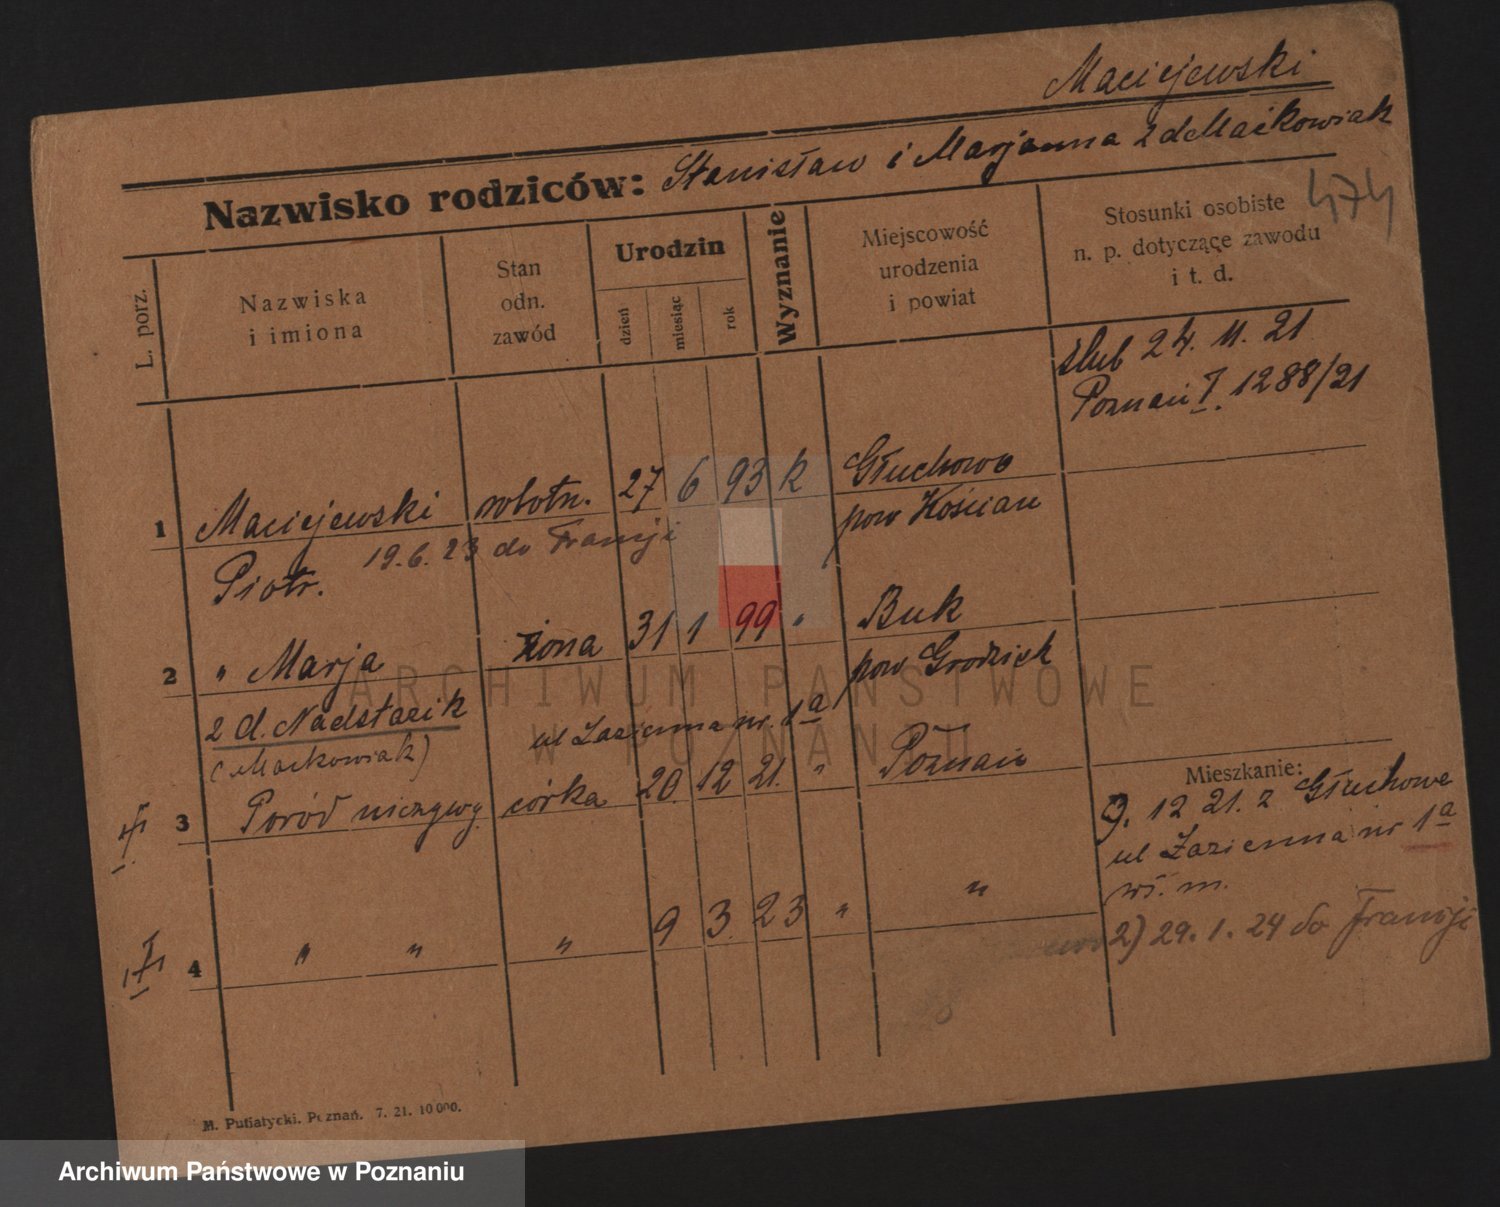 Maciejewski
Nazwisko rodziców: Stanisław i Marjanna z d Maćkowiak
474
L. porz.
Nazwiska
i imiona
Stan
odn.
zawód
Urodzin
dzień
miesiąc
rok
Wyznanie
Miejscowość
urodzenia
i powiat
Stosunki osobiste
n. p. dotyczące zawodu
i t. d.
ślub 24. 11. 21
Poznań I. 1288/21
1 Maciejewski robotn. 27 6 93 k Głuchowo
Piotr. 19. 6. 23 do Francji pow Kościan
2 " Marja żona 31 1 99 " Buk
z d. Nadstazik pow Grodzisk
(Maćkowiak) ul Łazienna nr. 1a
3 Poród nieżywy córka 20. 12 21. " Poznań
Mieszkanie:
9. 12 21. z Głuchowa
ul Łazienna nr 1a
wś. m.
4 " " " 9 3 23 " "
2) 29. 1. 24 do Francji
M. Putiatycki, Poznań. 7. 21. 10000.
ARCHIWUM PAŃSTWOWE
W POZNANIU
Archiwum Państwowe w Poznaniu